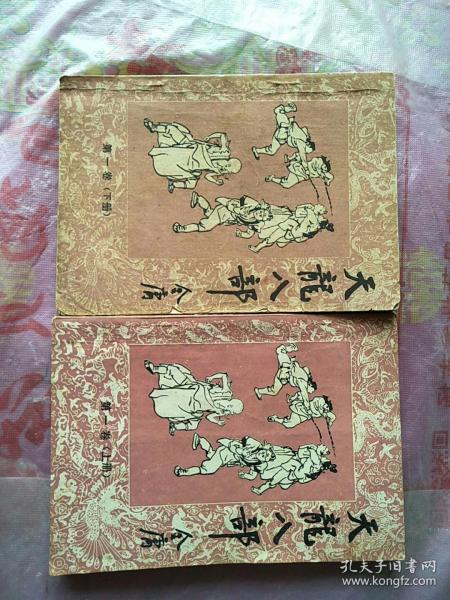 天龍八部
金庸
第一卷(下册)
天龍八部
金庸
第一卷(上册)
孔夫子旧书网
www.kongfz.com